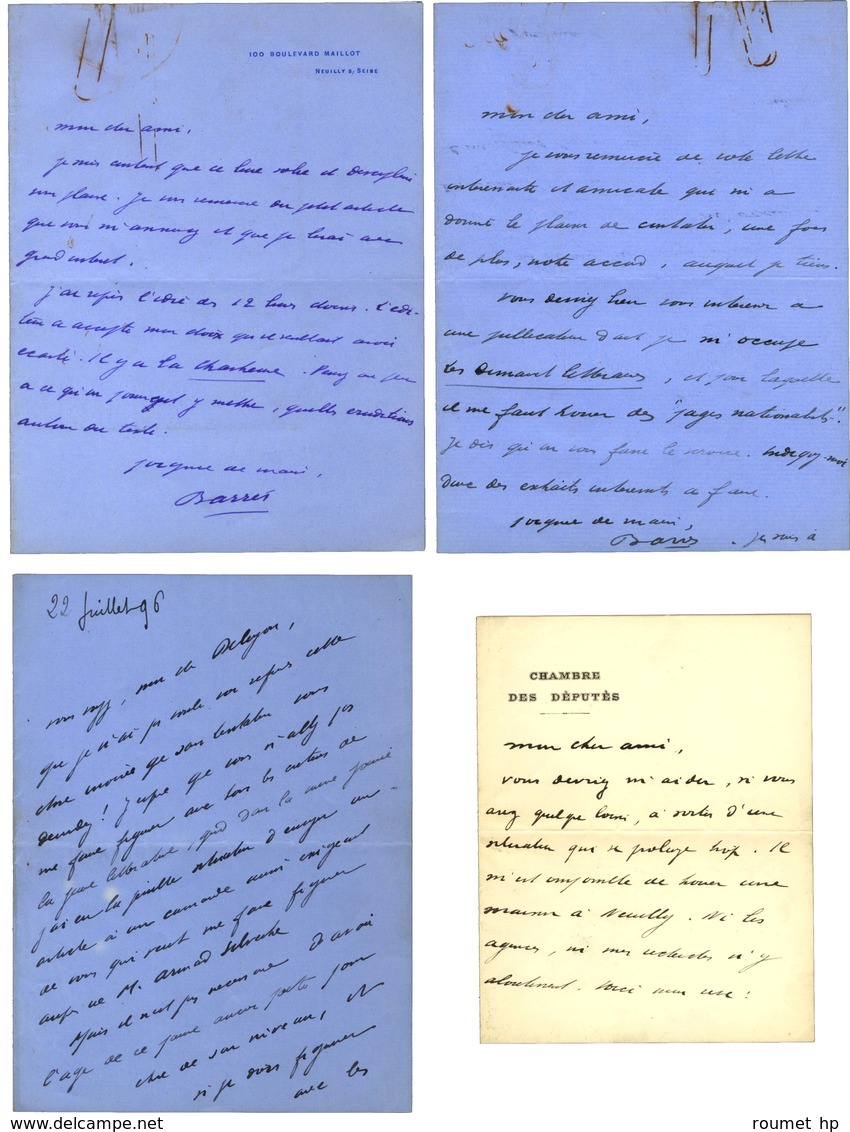 100 BOULEVARD MAILLOT
NEUILLY S/ SEINE
mon cher ami,
je suis content que ce livre
mon plaise. Je vous remercie du petit article
que vous m'annoncez et que je lirai avec
grand intérêt.
J'ai repris l'idée des 12 livres
a accepté mon choix
écarté. Il y a La Chartreuse.
a ce qu'on pourrait y mettre, quelles
autour du texte.
poignée de main,
Barrès
mon cher ami,
je vous remercie de votre lettre
intéressante et amicale qui m'a
donné le plaisir de constater, une fois
de plus, notre accord, auquel je tiens.
Vous devriez bien vous intéresser à
une publication dont je m'occupe
Les Dimanches littéraires, et pour laquelle
il me faut trouver des "pages nationalistes".
Je dis qu'on vous fasse le service. Indiquez-moi
donc des extraits intéressants à faire.
poignée de main,
Barrès . je suis à
22 Juillet 96
vous voyez, mon cher
que je n'ai pas voulu vous refuser cette
chose moins que vous
demandez ! J'espère que vous n'allez pas
me faire figurer avec tous les
la jeune littérature, qui dans la même journée
j'ai eu la d'envoyer un
article à un camarade aussi exigeant
de vous qui veut me faire figurer
auprès de M. Armand Silvestre
Mais il n'est pas nécessaire d'avoir
l'âge de ce jeune poète pour
être de son niveau, et
si je dois figurer
avec les
CHAMBRE
DES DÉPUTÉS
mon cher ami,
vous devriez m'aider, si vous
avez quelque loisir, à sortir d'une
situation qui se prolonge trop. Il
m'est impossible de trouver une
maison à Neuilly. Ni les
agences, ni mes recherches n'y
aboutissent. Voici mon rêve :
roumet hp